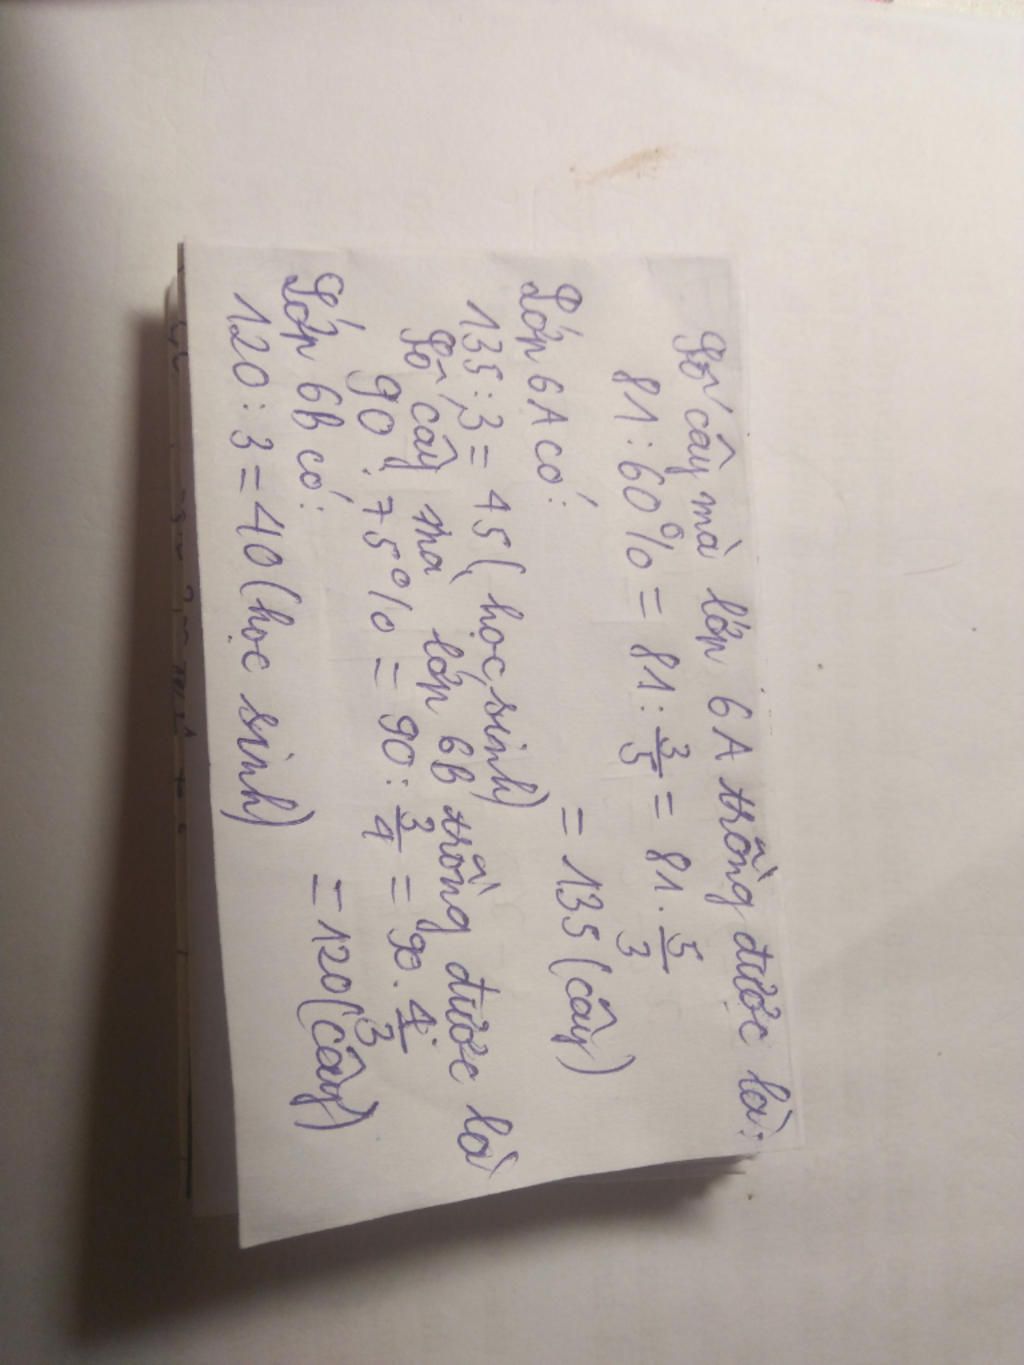 Số cây mà lớp 6A trồng được là:
81 : 60% = 81 : 3/5 = 81 . 5/3
= 135 (cây)
Lớp 6A có:
135 : 3 = 45 (học sinh)
Số cây mà lớp 6B trồng được là
90 : 75% = 90 : 3/4 = 90 . 4/3
= 120 (cây)
Lớp 6B có:
120 : 3 = 40 (học sinh)